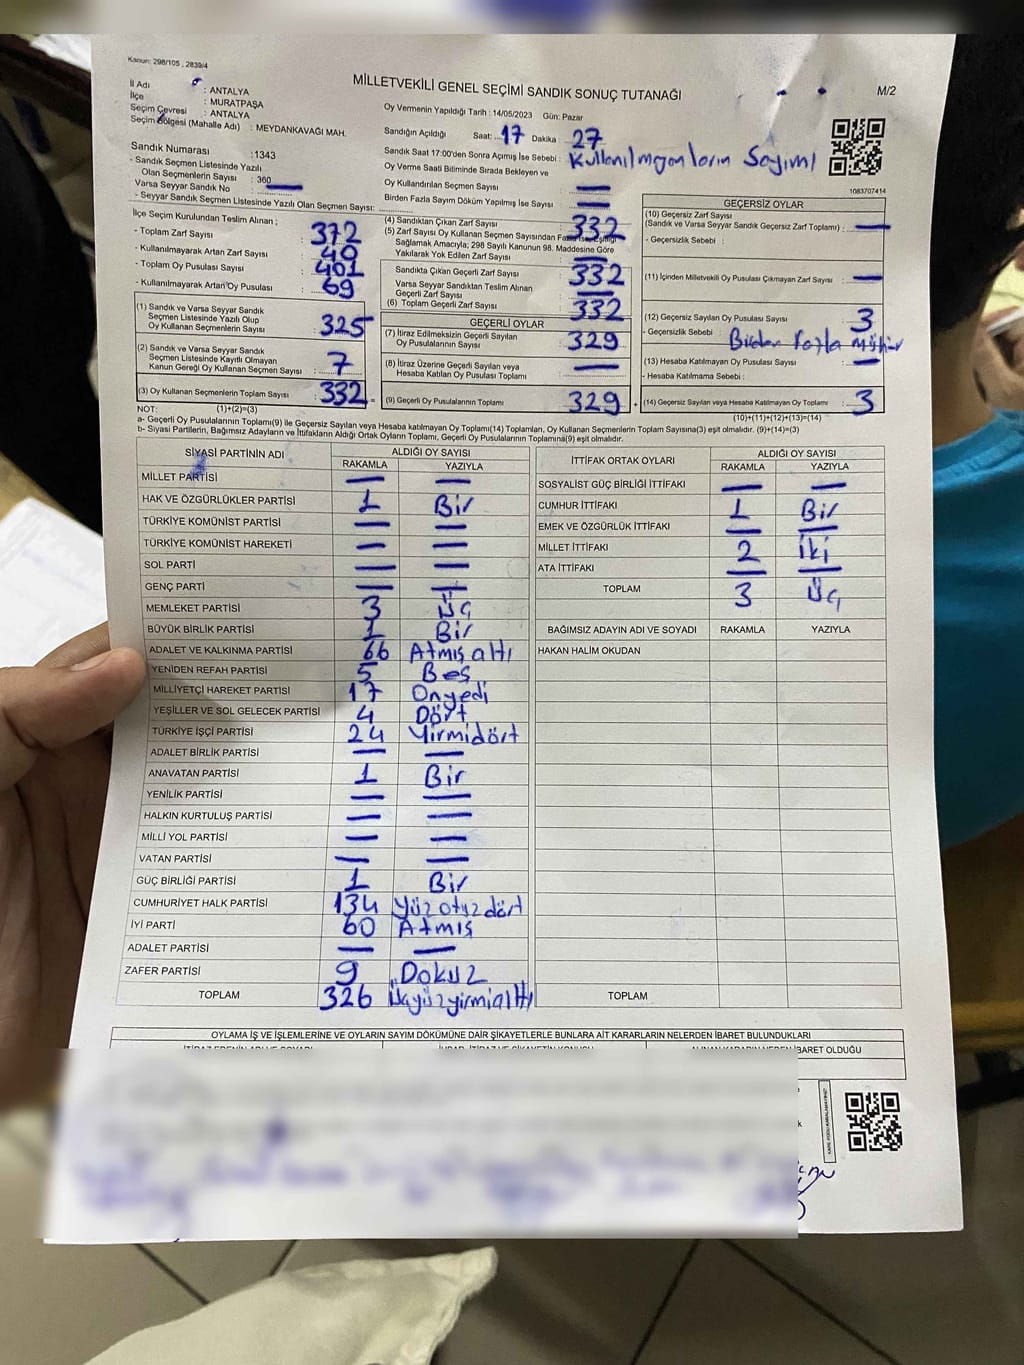 Kanun: 298/105 , 2839/4
MİLLETVEKİLİ GENEL SEÇİMİ SANDIK SONUÇ TUTANAĞI
M/2
İl Adı : ANTALYA
İlçe : MURATPAŞA
Seçim Çevresi : ANTALYA
Seçim Bölgesi (Mahalle Adı) : MEYDANKAVAĞI MAH.
Sandık Numarası :1343
- Sandık Seçmen Listesinde Yazılı
Olan Seçmenlerin Sayısı : 360
Varsa Seyyar Sandık No : —
- Seyyar Sandık Seçmen Listesinde Yazılı Olan Seçmen Sayısı:
Oy Vermenin Yapıldığı Tarih : 14/05/2023 Gün: Pazar
Sandığın Açıldığı Saat: 17 Dakika : 27
Sandık Saat 17:00'den Sonra Açımış İse Sebebi : Kullanılmayanların Sayımı
Oy Verme Saati Bitiminde Sırada Bekleyen ve
Oy Kullandırılan Seçmen Sayısı : —
Birden Fazla Sayım Döküm Yapılmış İse Sayısı : —
1083707414
İlçe Seçim Kurulundan Teslim Alınan ;
- Toplam Zarf Sayısı : 372
- Kullanılmayarak Artan Zarf Sayısı : 40
- Toplam Oy Pusulası Sayısı : 401
- Kullanılmayarak Artan Oy Pusulası : 69
(1) Sandık ve Varsa Seyyar Sandık
Seçmen Listesinde Yazılı Olup
Oy Kullanan Seçmenlerin Sayısı : 325
(2) Sandık ve Varsa Seyyar Sandık
Seçmen Listesinde Kayıtlı Olmayan
Kanun Gereği Oy Kullanan Seçmen Sayısı : 7
(3) Oy Kullanan Seçmenlerin Toplam Sayısı : 332 =
(4) Sandıktan Çıkan Zarf Sayısı : 332
(5) Zarf Sayısı Oy Kullanan Seçmen Sayısından Fazla İse, Eşitliği
Sağlamak Amacıyla; 298 Sayılı Kanunun 98. Maddesine Göre
Yakılarak Yok Edilen Zarf Sayısı : —
Sandıkta Çıkan Geçerli Zarf Sayısı : 332
Varsa Seyyar Sandıktan Teslim Alınan
Geçerli Zarf Sayısı : —
(6) Toplam Geçerli Zarf Sayısı : 332
GEÇERLİ OYLAR
(7) İtiraz Edilmeksizin Geçerli Sayılan
Oy Pusulalarının Sayısı : 329
(8) İtiraz Üzerine Geçerli Sayılan veya
Hesaba Katılan Oy Pusulası Toplamı : —
(9) Geçerli Oy Pusulalarının Toplamı : 329 +
GEÇERSİZ OYLAR
(10) Geçersiz Zarf Sayısı
(Sandık ve Varsa Seyyar Sandık Geçersiz Zarf Toplamı) : —
- Geçersizlik Sebebi :
(11) İçinden Milletvekili Oy Pusulası Çıkmayan Zarf Sayısı : —
(12) Geçersiz Sayılan Oy Pusulası Sayısı : 3
- Geçersizlik Sebebi : Birden fazla mühür
(13) Hesaba Katılmayan Oy Pusulası Sayısı : —
- Hesaba Katılmama Sebebi :
(14) Geçersiz Sayılan veya Hesaba Katılmayan Oy Toplamı : 3
NOT: (1)+(2)=(3)
(10)+(11)+(12)+(13)=(14)
a- Geçerli Oy Pusulalarının Toplamı(9) İle Geçersiz Sayılan veya Hesaba katılmayan Oy Toplamı(14) Toplamları, Oy Kullanan Seçmenlerin Toplam Sayısına(3) eşit olmalıdır. (9)+(14)=(3)
b- Siyasi Partilerin, Bağımsız Adayların ve İttifakların Aldığı Ortak Oyların Toplamı, Geçerli Oy Pusulalarının Toplamına(9) eşit olmalıdır.
SİYASİ PARTİNİN ADI ALDIĞI OY SAYISI
RAKAMLA YAZIYLA
MİLLET PARTİSİ — —
HAK VE ÖZGÜRLÜKLER PARTİSİ 1 Bir
TÜRKİYE KOMÜNİST PARTİSİ — —
TÜRKİYE KOMÜNİST HAREKETİ — —
SOL PARTİ — —
GENÇ PARTİ — —
MEMLEKET PARTİSİ 3 Üç
BÜYÜK BİRLİK PARTİSİ 1 Bir
ADALET VE KALKINMA PARTİSİ 66 Atmış altı
YENİDEN REFAH PARTİSİ 5 Beş
MİLLİYETÇİ HAREKET PARTİSİ 17 Onyedi
YEŞİLLER VE SOL GELECEK PARTİSİ 4 Dört
TÜRKİYE İŞÇİ PARTİSİ 24 Yirmidört
ADALET BİRLİK PARTİSİ — —
ANAVATAN PARTİSİ 1 Bir
YENİLİK PARTİSİ — —
HALKIN KURTULUŞ PARTİSİ — —
MİLLİ YOL PARTİSİ — —
VATAN PARTİSİ — —
GÜÇ BİRLİĞİ PARTİSİ 1 Bir
CUMHURİYET HALK PARTİSİ 134 Yüz otuz dört
İYİ PARTİ 60 Atmış
ADALET PARTİSİ — —
ZAFER PARTİSİ 9 Dokuz
TOPLAM 326 Üçyüzyirmialtı
İTTİFAK ORTAK OYLARI ALDIĞI OY SAYISI
RAKAMLA YAZIYLA
SOSYALİST GÜÇ BİRLİĞİ İTTİFAKI — —
CUMHUR İTTİFAKI 1 Bir
EMEK VE ÖZGÜRLÜK İTTİFAKI — —
MİLLET İTTİFAKI 2 İki
ATA İTTİFAKI — —
TOPLAM 3 Üç
BAĞIMSIZ ADAYIN ADI VE SOYADI RAKAMLA YAZIYLA
HAKAN HALİM OKUDAN
TOPLAM
OYLAMA İŞ VE İŞLEMLERİNE VE OYLARIN SAYIM DÖKÜMÜNE DAİR ŞİKAYETLERLE BUNLARA AİT KARARLARIN NELERDEN İBARET BULUNDUKLARI
İBARET OLDUĞU